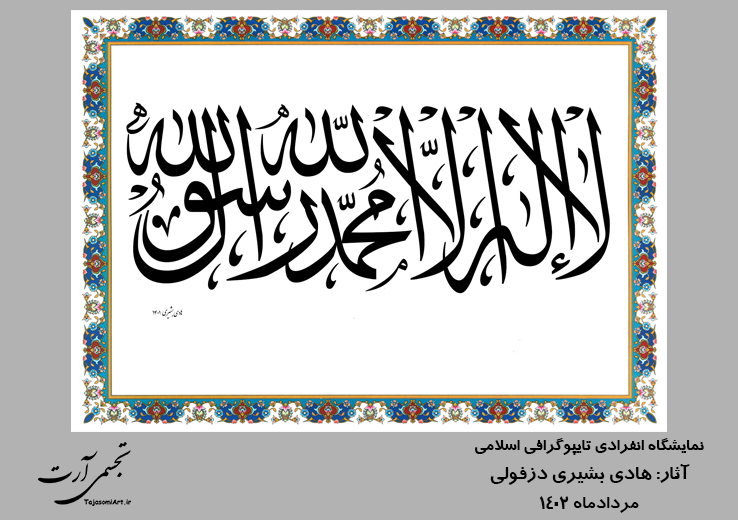 لا إله إلّا الله محمّد رسول الله
هادی بشیری ۱۴۰۱
نمایشگاه انفرادی تایپوگرافی اسلامی
آثار: هادی بشیری دزفولی
مردادماه ۱۴۰۲
تجسمی آرت
TajasomiArt.ir